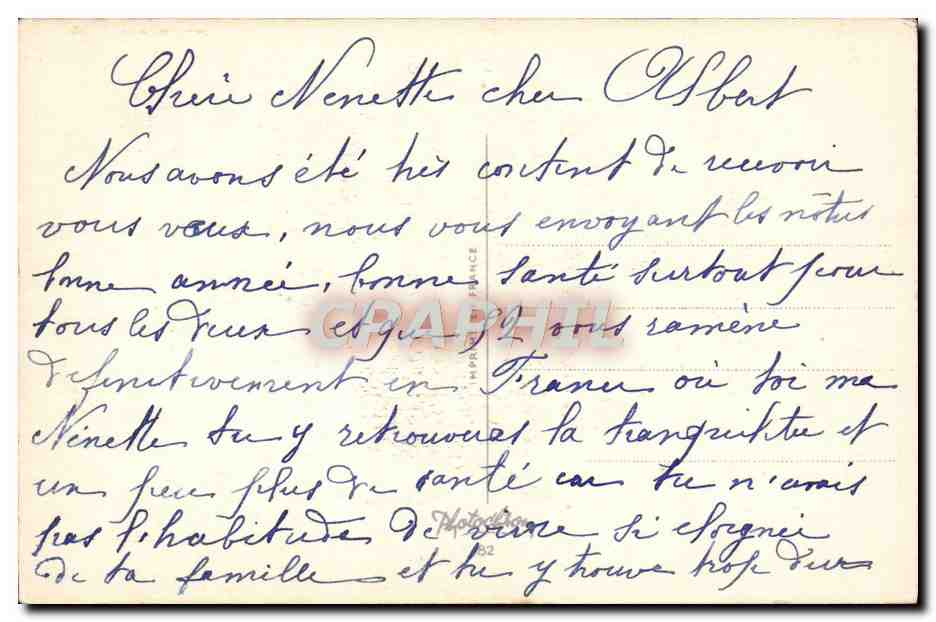 Chère Nenette cher Albert
Nous avons été très content de recevoir
vous vœux, nous vous envoyant les nôtres
bonne année, bonne santé surtout pour
tous les deux et que 52 vous ramène
definitivement en France où toi ma
Nénette tu y retrouveras la tranquilitée et
un peu plus de santé car tu n'avais
pas l'habitude de vivre si eloignée
de ta famille et tu y trouve trop dur
IMPRIMÉ EN FRANCE
CRAPHIL
Photochrom
82